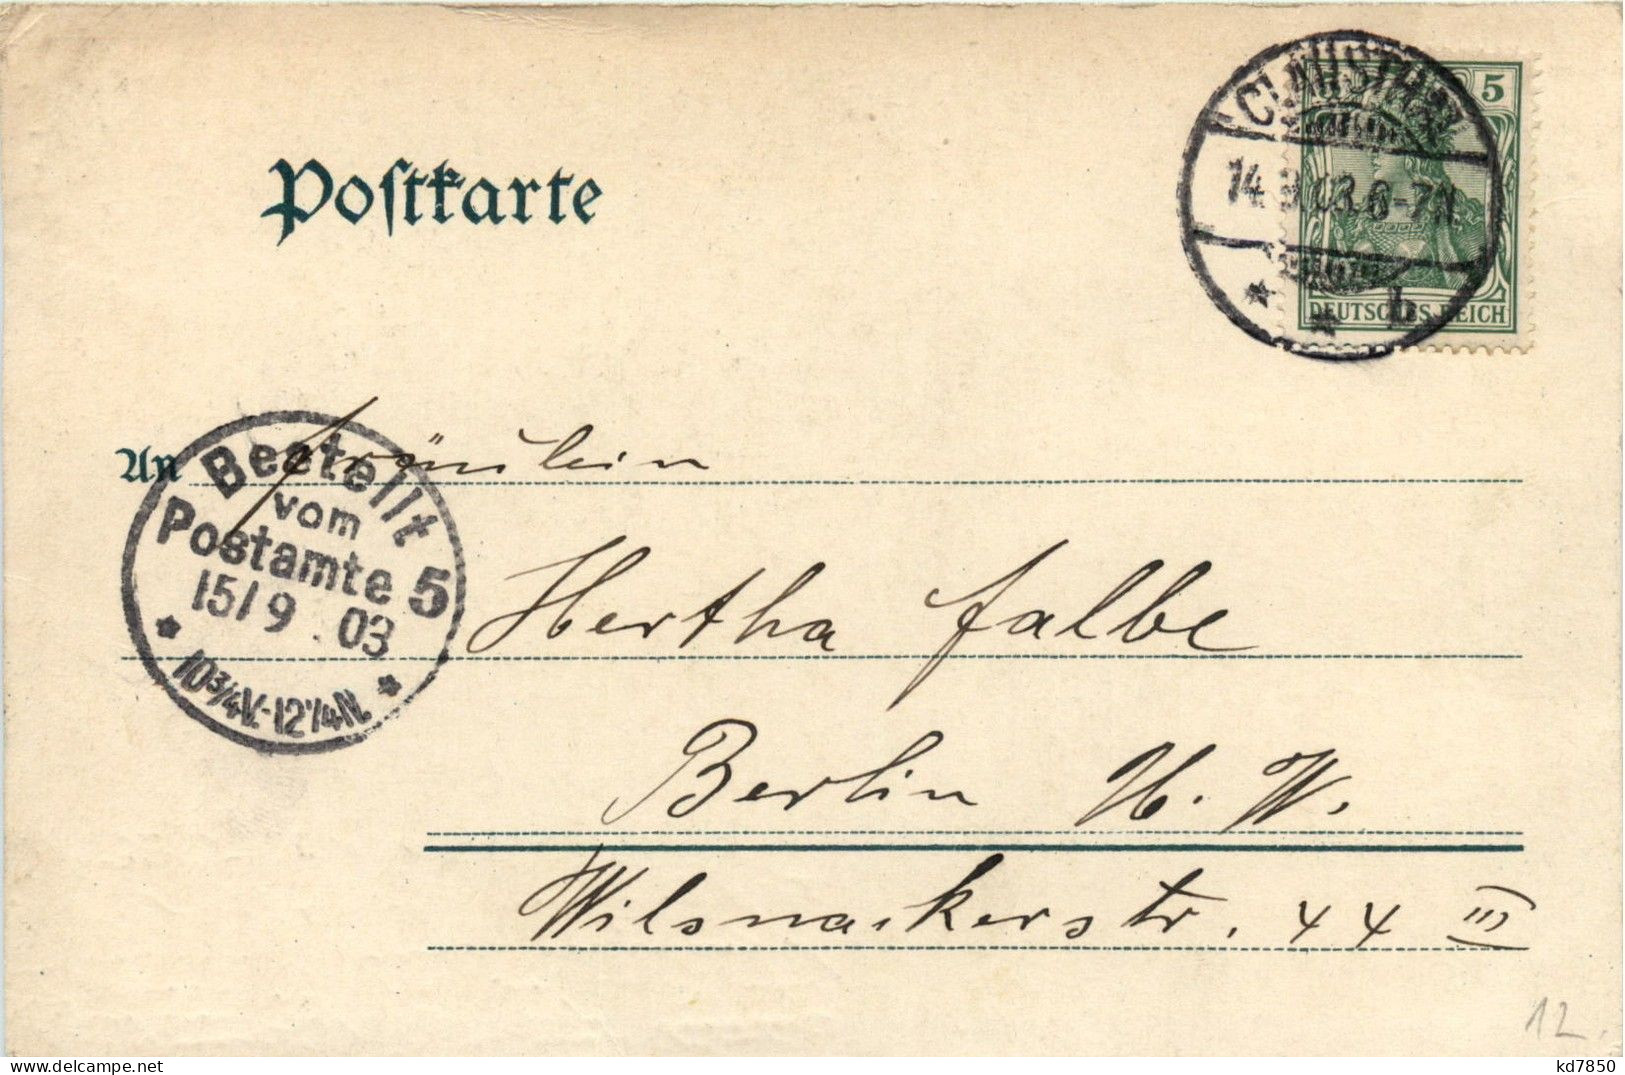 Postkarte
CLAUSTHAL
14.9.03.6-7N
* * b
5
DEUTSCHES REICH
An Fräulein
Bestellt
vom
Postamte 5
15/9.03
* 10¾V.-12¼N. *
Hertha Falbe
Berlin N. W.
Wilsnackerstr. 44 III
12.
kd7850